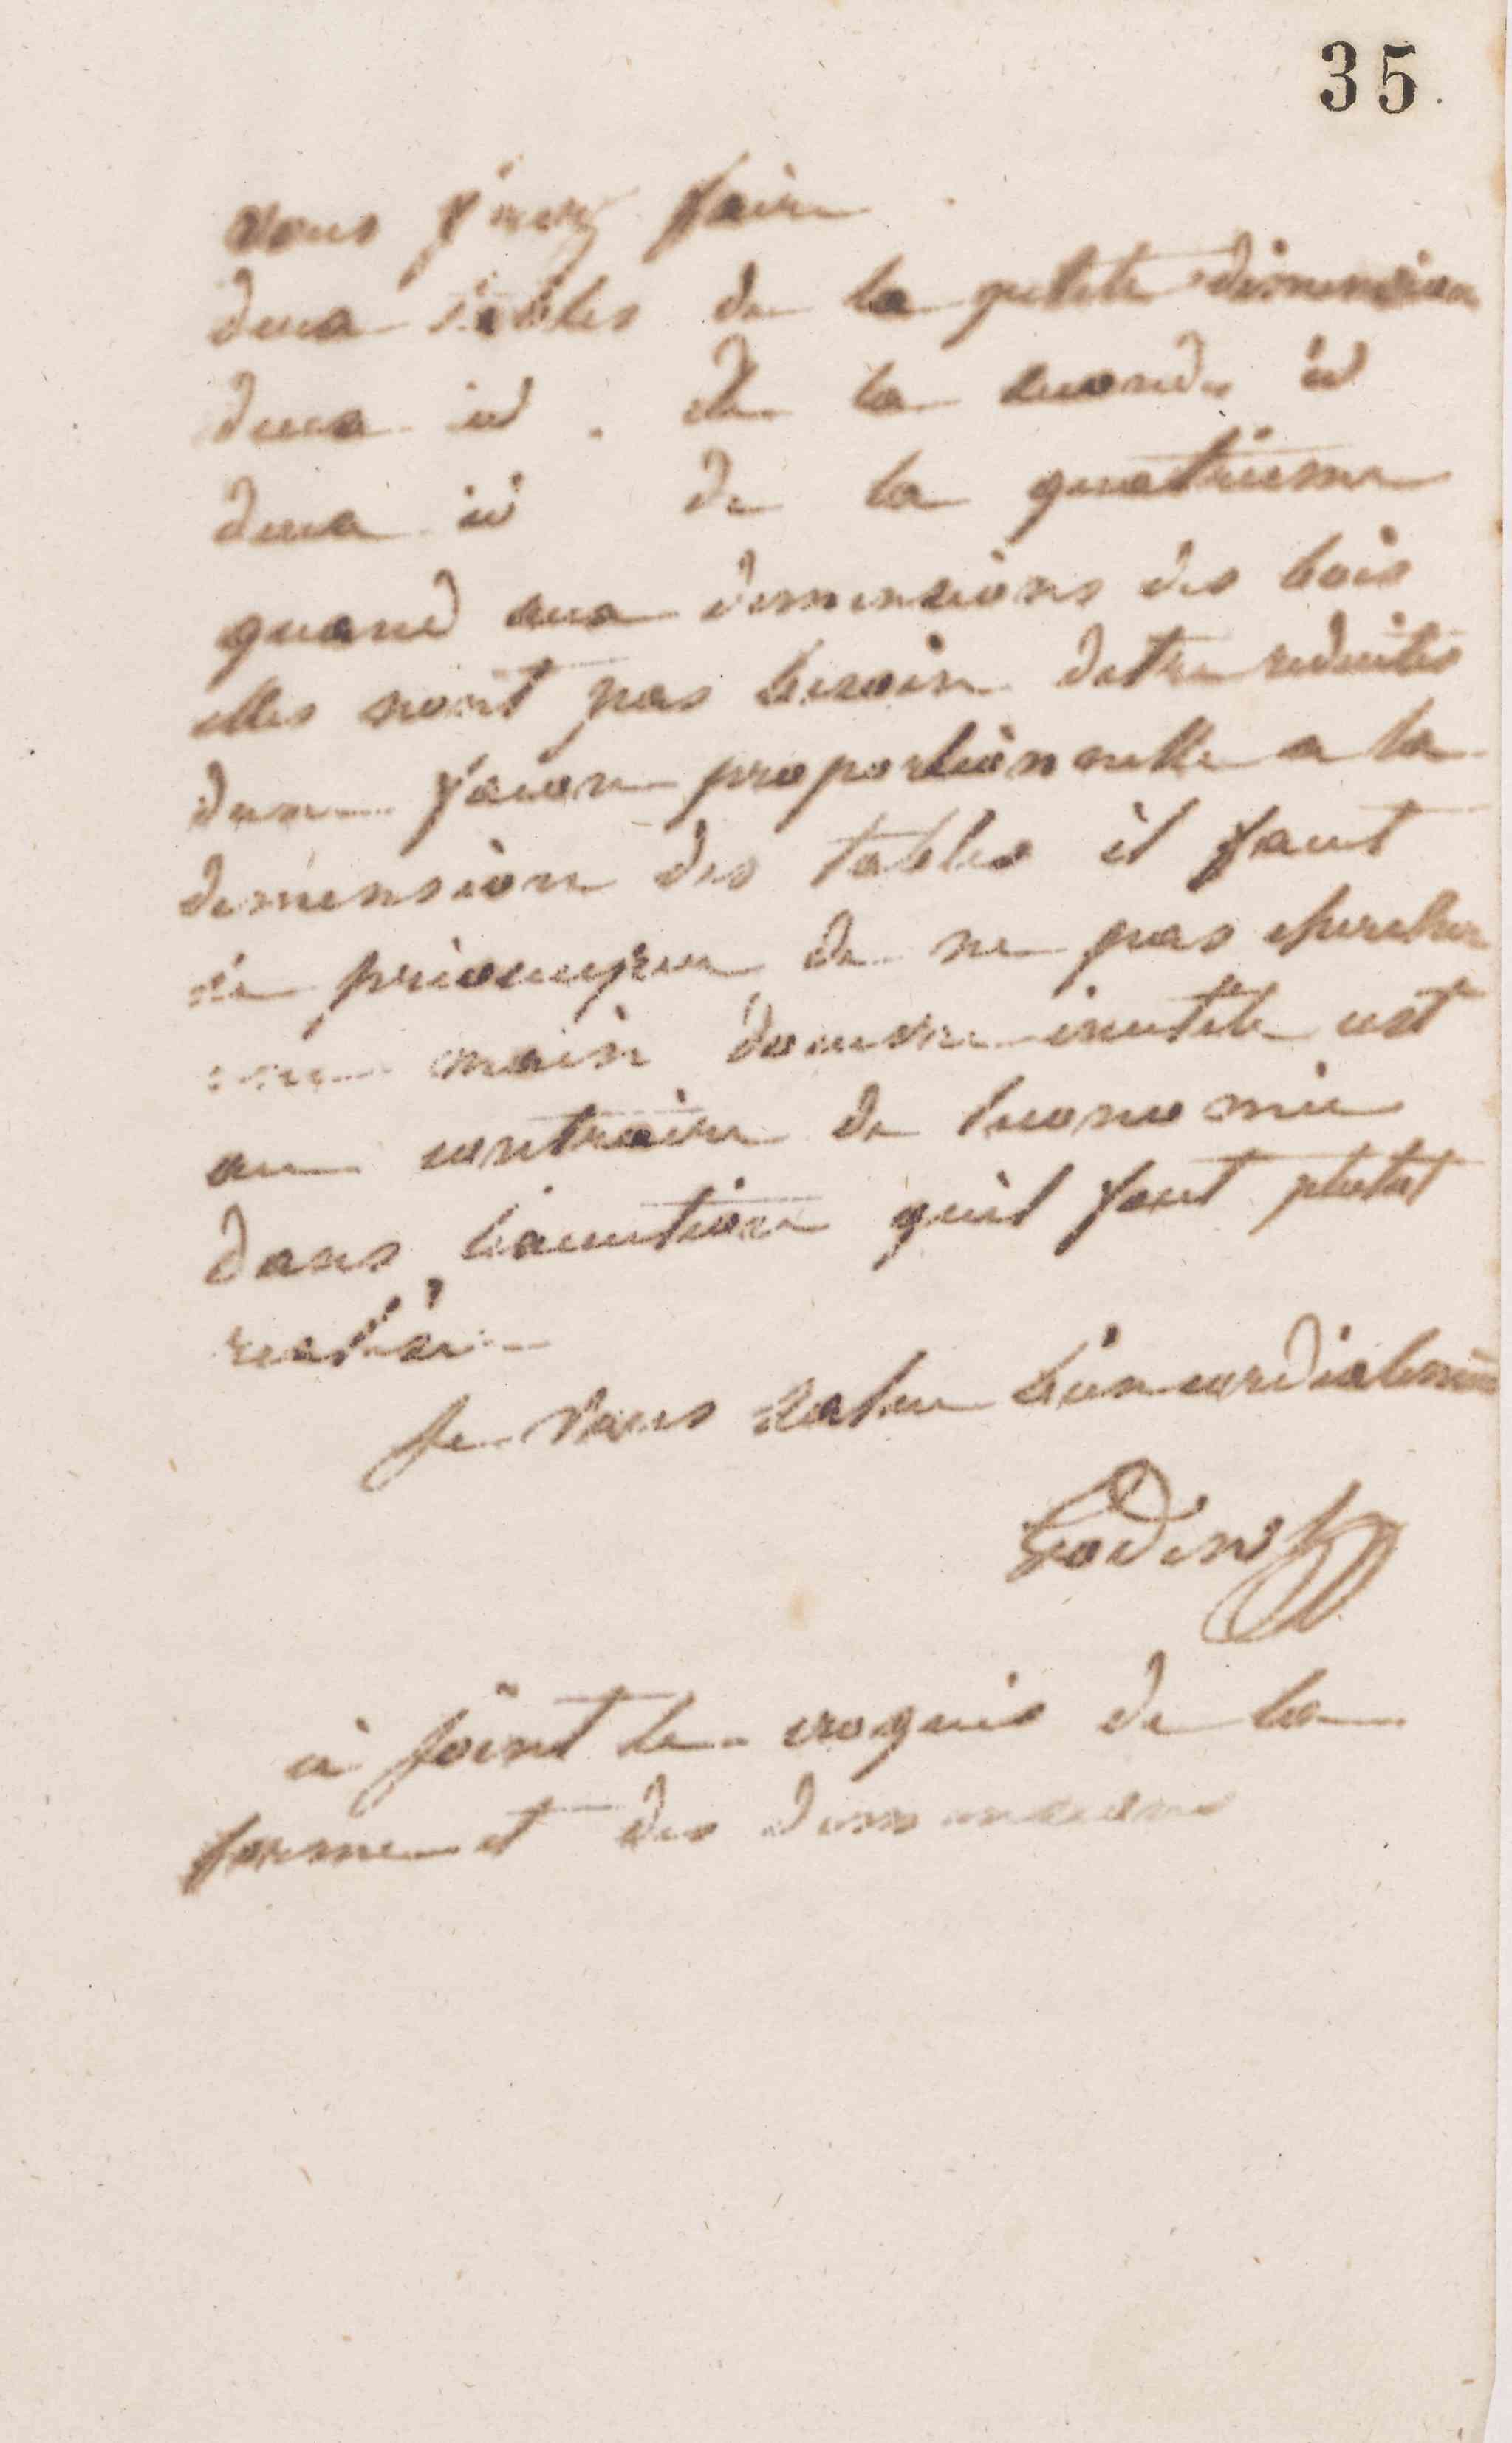 35
vous ferez faire
deux tables de la petite dimension
deux id. de la seconde id
deux id de la quatrieme
quand aux dimensions des bois
elles nont pas besoin detre reduites
dune facon proportionnelle a la
dimension des tables il faut
se de ne pas chercher
une main doeuvre inutile cest
au contraire de leconomie
dans lexecution quil faut plutot
rester
Je vous salue bien cordialement
Godin
ci joint le croquis de la
forme et des dimensions